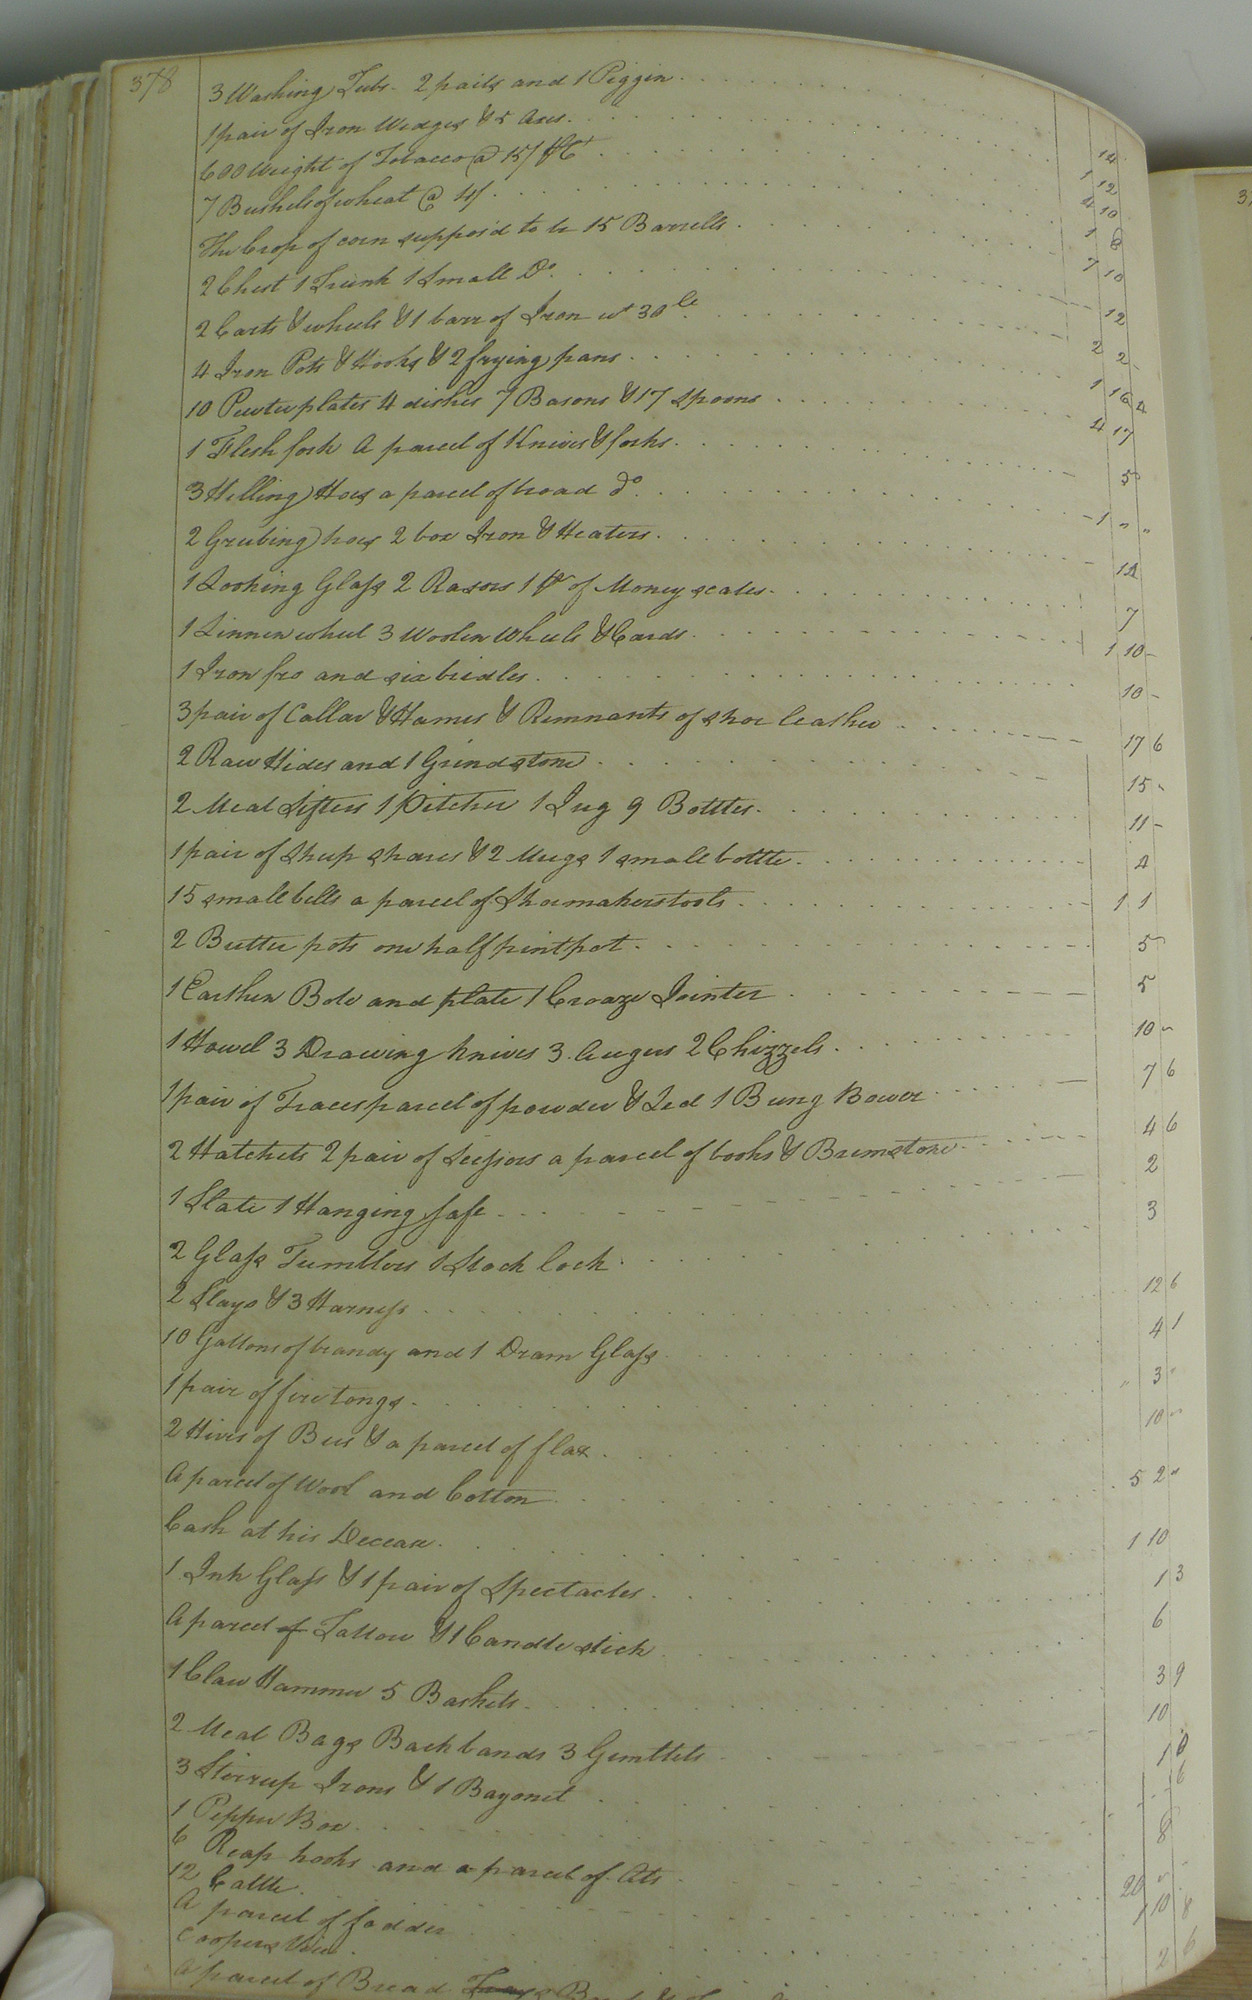 378
3 Washing Tubs. 2 pails and 1 Piggin
1 pair of Iron Wedges & 5 Axes. 14
600 Weight of Tobacco @ 15/ 1 12
7 Bushels of wheat @ 4/ 4 10
The Crop of corn suppos'd to be 15 Barrells 1 8
2 Chest 1 Trunk 1 Small Do. 7 10
2 Carts & wheels & 1 barr of Iron wt 30 12
4 Iron Pots & Hooks & 2 frying pans 2 2
10 Pewter plates 4 dishes 7 Basons & 17 Spoons 1 16 4
1 Flesh fork A parcel of Knives & forks. 4 17
3 Hilling Hoes a parcel of broad do. 5
2 Grubing hoes 2 box Iron & Heaters. 1 " "
1 Looking Glass 2 Rasors 1 pr of Money scales. 12
1 Linnen wheel 3 Woolen Wheels & Cards. 7
1 Iron fro and six bridles. 1 10 -
3 pair of Collar & Hames & Remnants of shoe leather 10 -
2 Raw Hides and 1 Grindstone 17 6
2 Meal Sifters 1 Pitcher 1 Jug 9 Bottles. 15 -
1 pair of Sheep shares & 2 Mugs 1 small bottle. 11 -
15 small bells a parcel of Shoemakers tools 4
2 Butter pots one half pint pot. 1 1
1 Earthen Bole and plate 1 Croaze Jointer 5
1 Howel 3 Drawing knives 3 Augers 2 Chizzels. 5
1 pair of Traces parcel of powder & Led 1 Bung Bower 10 -
2 Hatchets 2 pair of Scissors a parcel of books & Brimstone 7 6
1 Slate 1 Hanging safe 4 6
2 Glass Tumblers 1 Stock lock 2
2 Slays & 3 Harness 3
10 Gallons of brandy and 1 Dram Glass 12 6
1 pair of fire tongs. 4 1
2 Hives of Bees & a parcel of flax. " 3 "
A parcel of Wool and Cotton 10 "
Cash at his Decease. 5 2 "
1 Ink Glass & 1 pair of Spectacles 1 10
A parcel of Tallow & 1 Candle stick 1 3
1 Claw Hammer 5 Baskets. 6
2 Meal Bags Back bands 3 Gimblets 3 9
3 Stirrup Irons & 1 Bayonet 10
1 Pepper Box 1
6 Reap hooks and a parcel of 6
12 Cattle. 8
A parcel of fodder 20
Coopers Vice. 1 10 8
A parcel of Bread 2 6